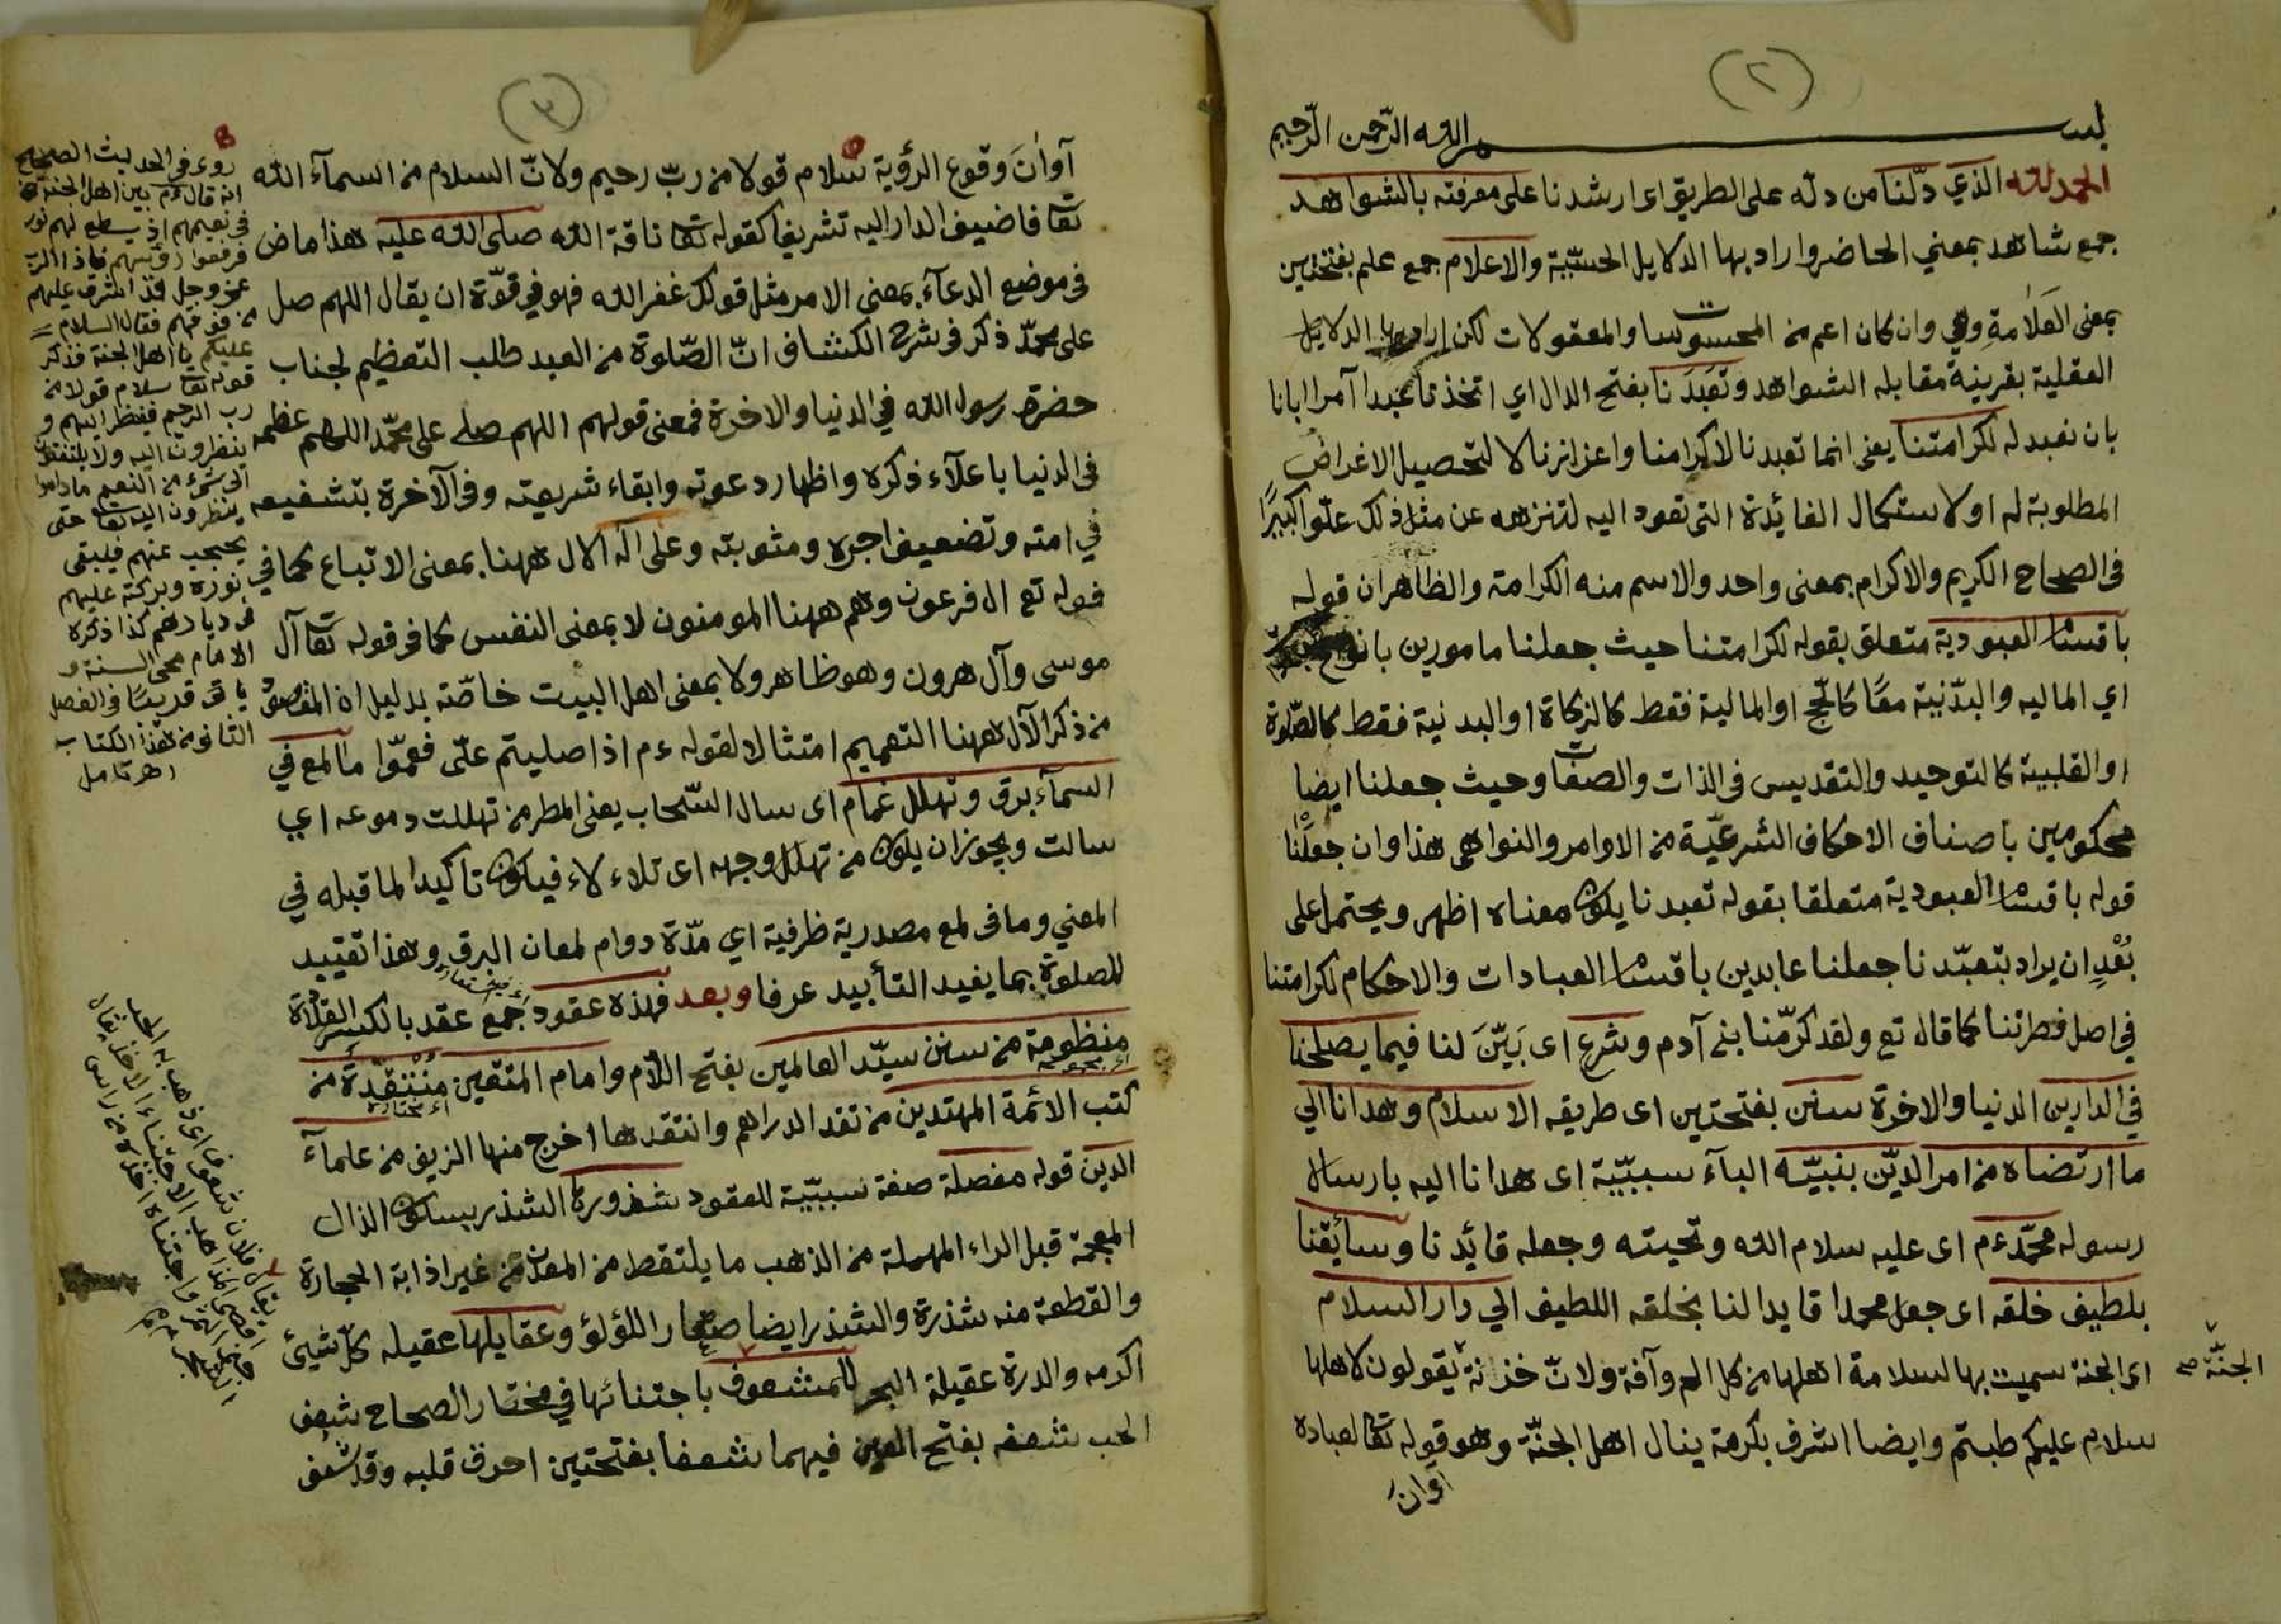 (٢)
بسم الله الرّحمن الرّحيم
الحمد لله الذي دلّنا من دله على الطريق اى ارشدنا على معرفته بالشواهد
جمع شاهد بمعني الحاضر واراد بها الدلايل الحسّيّة والاعلام جمع علم بفتحتين
بمعنى العَلاَمةِ وهي وان كان اعم من المحسوسات والمعقولات لكن اراد بها الدلايل
العقلية بقرينة مقابله الشواهد وتعَبّدَنا بفتح الدال اي اتخذنا عبدا آمرا ايانا
بان نعبد له لكرامتنا يعنى انما تعبدنا لاكرامنا واعزازنا لا لتحصيل الاغراض
المطلوبة له او لاستكمال الفائدة التى تعود اليه لتنزهه عن مثل ذلك علوّا كبيرًا
فى الصحاح الكريم والاكرام بمعنى واحد والاسم منه الكرامة والظاهر ان قوله
باقسام العبودية متعلق بقوله لكرامتنا حيث جعلنا مامورين بانواع
اي الماليه والبدّنيّة معًا كالحّج او المالية فقط كالزكاة او البدنية فقط كالصّلوة
او القلبية كالتوحيد والتقديس فى الذات والصفات وحيث جعلنا ايضا
محكومين باصناف الاحكام الشرعيّة من الاوامر والنواهى هذا وان جعلنا
قوله باقسام العبودية متعلقا بقوله تعبدنا يكون معناه اظهر ويحتمل على
بُعْدِ ان يراد بتعبّدنا جعلنا عابدين باقسام العبادات والاحكام لكرامتنا
في اصل فطرتنا كما قال تع ولقد كرّمنا بنى آدم وشرع اى بَيّنَ لنا فيما يصلحنا
في الدارين الدنيا والاخرة سنن بفتحتين اى طريقه الاسلام وهدانا الي
ما ارتضاه من امر الديّن بنبيّه البآء سببيّة اى هدانا اليه بارسال
رسوله محمّد ءم اى عليه سلام الله وتحيته وجعله قائدنا وسائقنا
بلطيف خلقه اى جعل محمدا قايدا لنا بخلقه اللطيف الي دار السلام
اى الجنة سميت بها لسلامة اهلها من كل الم وآفة ولانّ خزنة يقولون لاهلها
الجنّة صح
سلام عليكم طبتم وايضا اشرف بكرمة ينال اهل الجنّة وهو قوله تعا لعباده
آوان
(٣)
آوانَ وقوع الرؤية سلام قولا من ربّ رحيم ولانّ السلام من اسمآء الله
تعا فاضيف الدار اليه تشريفا كقوله تعا ناقة الله صلى الله عليه هذا ماض
فى موضع الدعآء بمعنى الامر مثل قولك غفر الله فهو في قوّة ان يقال اللهم صل
على محمّد ذكر فى شرح الكشاف انّ الصّلوة من العبد طلب التعظيم لجناب
حضرة رسول الله في الدنيا والاخرة فمعنى قولهم اللهم صلى على محمّد اللهم عظمه
فى الدنيا باعلآء ذكره واظهار دعوته وابقاء شريعته وفى الآخرة بتشفيعه
في امته وتضعيف اجره ومثوبته وعلى آله الال ههنا بمعنى الاتباع كما في
قوله تع ال فرعون وهم ههنا المومنون لا بمعنى النفس كما فى قوله تعا آل
موسى وآل هرون وهو ظاهر ولا بمعنى اهل البيت خاصّة بدليل ان المقصود
من ذكر الآل ههنا التعميم امتثالا لقوله ءم اذا صليتم علىّ فعمّوا ما لمع في
السمآء برق وتهلل غمام اى سال السّحاب يعنى المطر من تهللت دموعه اي
سالت ويجوز ان يكون من تهلل وجهه اى تلاء لاء فيكون تاكيدا لما قبله في
المعني وما فى لمع مصدرية ظرفية اي مدّة دوام لمعان البرق وهذا تقييد
للصلوة بما يفيد التأبيد عرفا وبعد فهذه عقود جمع عقد بالكسر القلادة
منظومة من سنن سيّد العالمين بفتح اللآم وامام المتقين مُنْتَقَدَة من
اى مجموعة
اى مختارة
كتب الائمة المهتدين من نقد الدراهم وانتقدها اخرج منها الزيف من علمآء
الدين قوله مفصلة صفة سببيّة للعقود شذوره الشذر بسكون الذال
المعجمة قبل الراء المهملة من الذهب ما يلتقط من المعدن من غير اذابة الحجارة
والقطعة منه شذرة والشذر ايضا صغار اللؤلؤ وعقايلها عقيله كلّ شيئ
اكرمه والدرة عقيلة البحر للمشعوف باجتنائها في مختار الصحاح شعف
الحب شعفه بفتح العين فيهما شعفا بفتحتين احرق قلبه وقد شعف
روى فى الحديث الصحيح
انه قال ءم بين اهل الجنة
فى نعيمهم اذ يسطع لهم نور
فرفعوا رؤسهم فاذا الرب
عزوجل قد اشرف عليهم
من فوقهم فقال السلام
عليكم يا اهل الجنة فذكر
قوله تعا سلام قولا من
رب الرحيم فينظر اليهم و
ينظرون اليه ولا يلتفتون
الى شئ من النعيم ماداموا
ينظرون اليه تعا حتى
يحتجب عنهم فيبقى
نوره وبركته عليهم
فى ديارهم كذا ذكره
الامام محى السنة و
ياتى قريبًا فى الفصل
الثانى من هذا الكتاب
اهر تامل